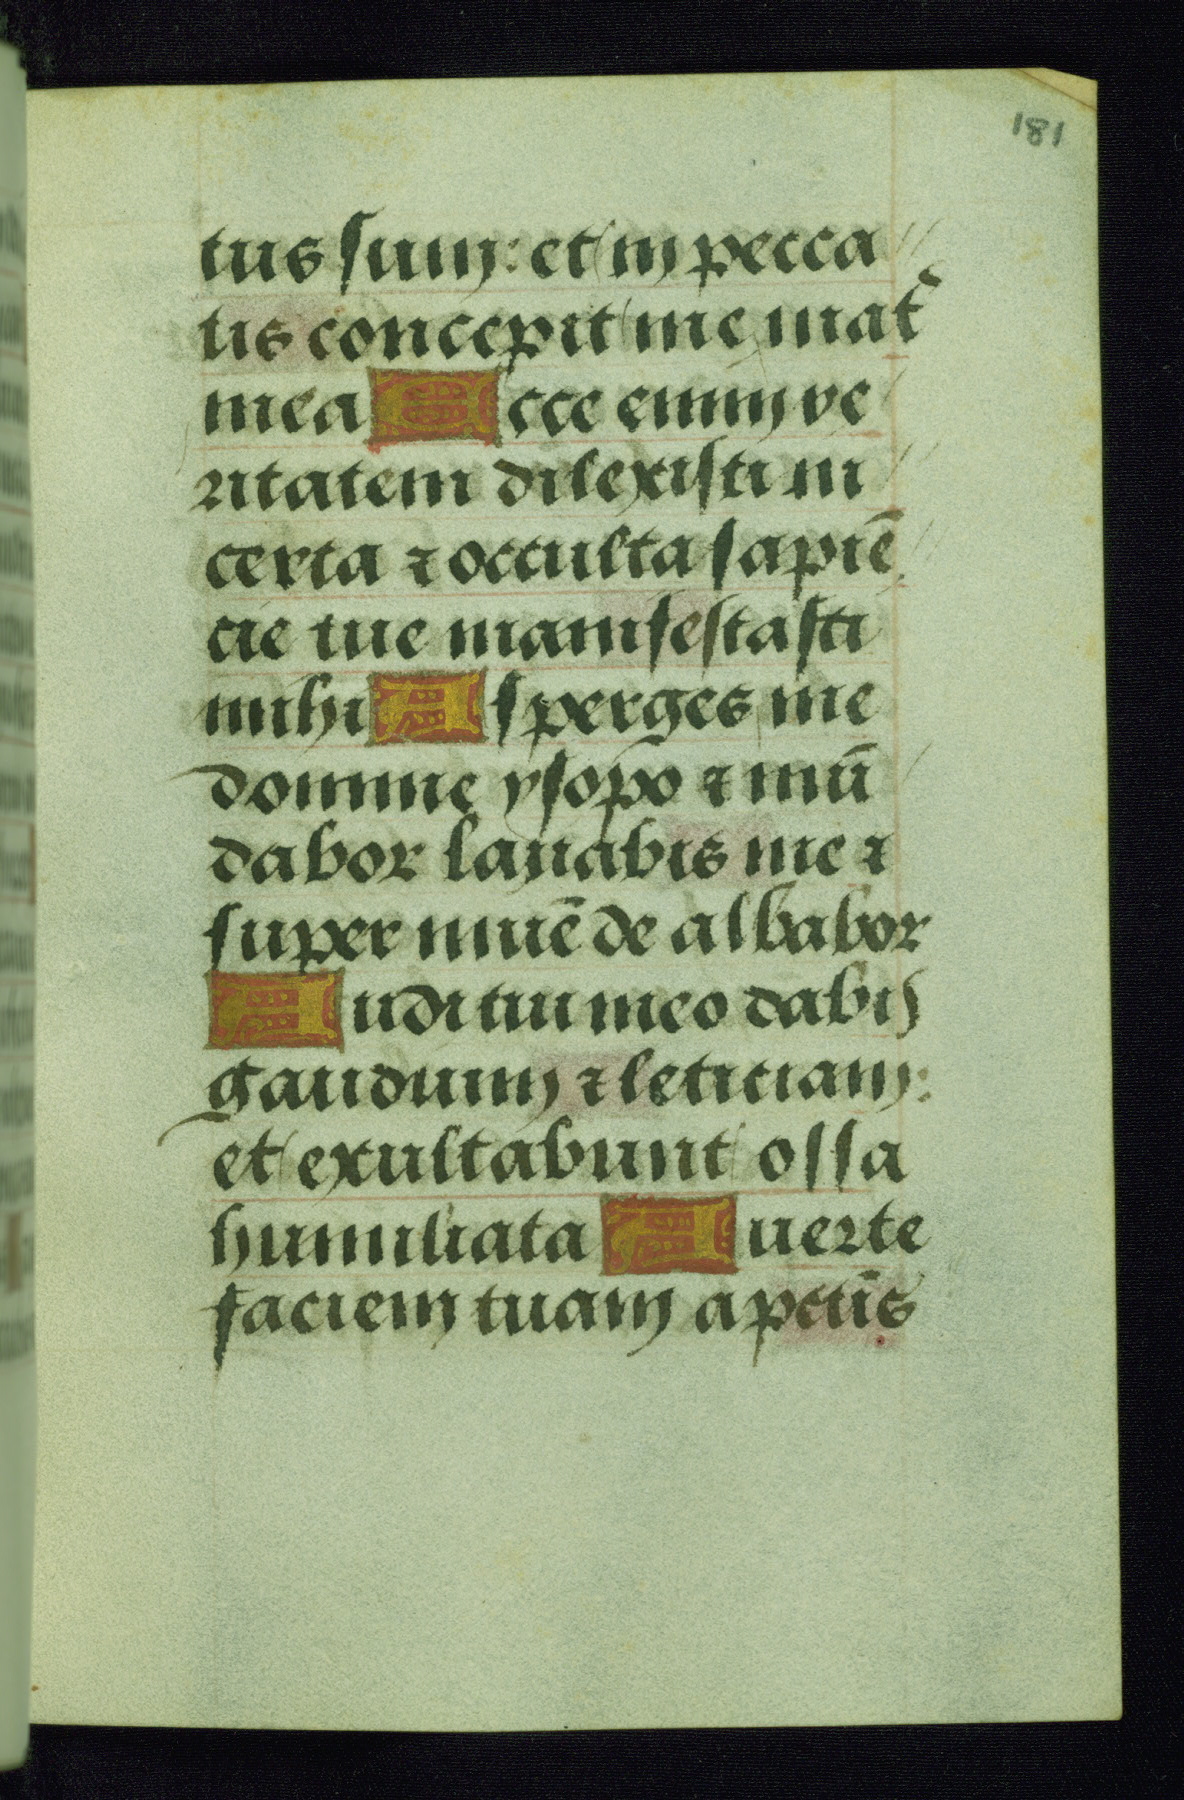 181
tus sum: et in pecca
tis concepit me mat̄
mea Ecce enim ve
ritatem dilexisti in
certa ⁊ occulta sapiē
cie tue manifestasti
mihi Asperges me
domine ysopo ⁊ mū
dabor lauabis me ⁊
super niuē de albabor
Auditui meo dabis
gaudium ⁊ leticiam:
et exultabunt ossa
humiliata Auerte
faciem tuam a pctīs